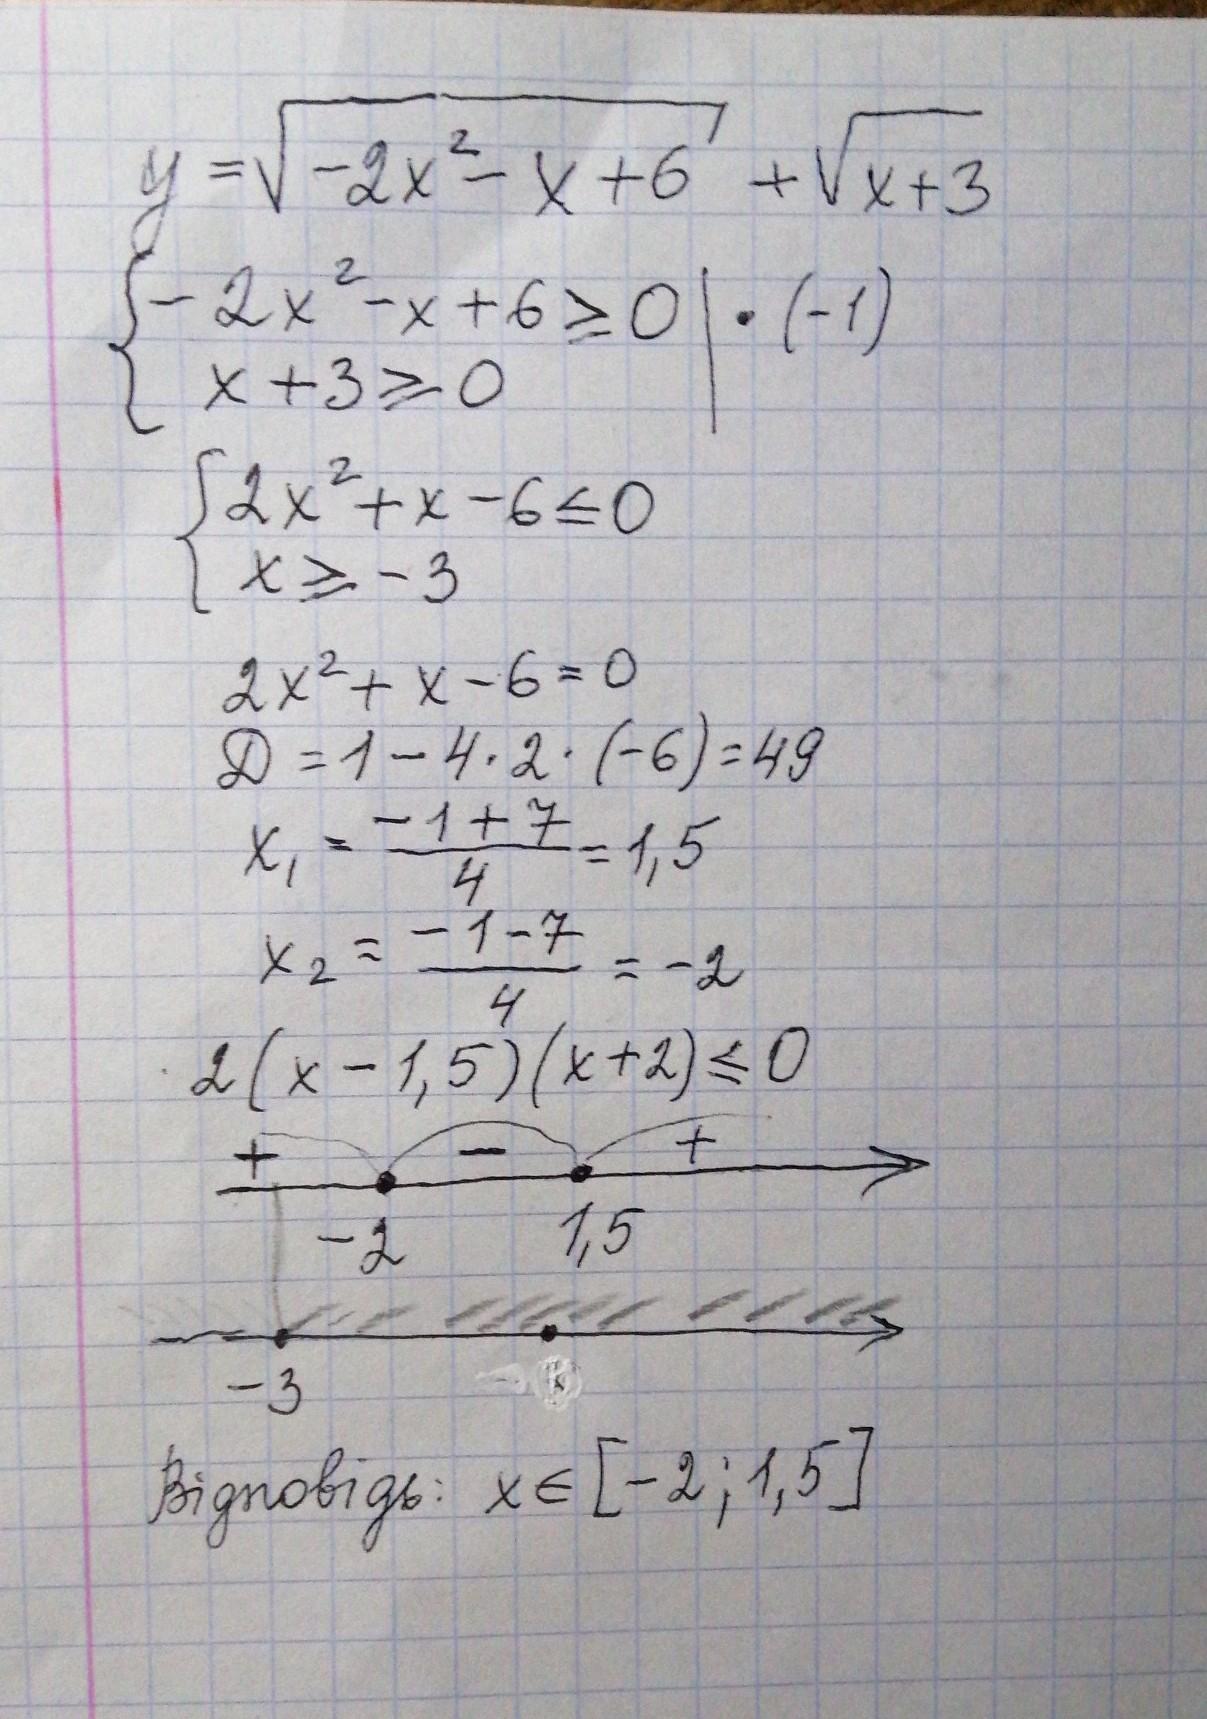 y = √(-2x² - x + 6) + √(x + 3)
{ -2x² - x + 6 ≥ 0 | · (-1)
x + 3 ≥ 0
{ 2x² + x - 6 ≤ 0
x ≥ -3
2x² + x - 6 = 0
D = 1 - 4 · 2 · (-6) = 49
x₁ = (-1 + 7)/4 = 1,5
x₂ = (-1 - 7)/4 = -2
2(x - 1,5)(x + 2) ≤ 0
+ - +
-2 1,5
-3
Відповідь: x ∈ [-2; 1,5]